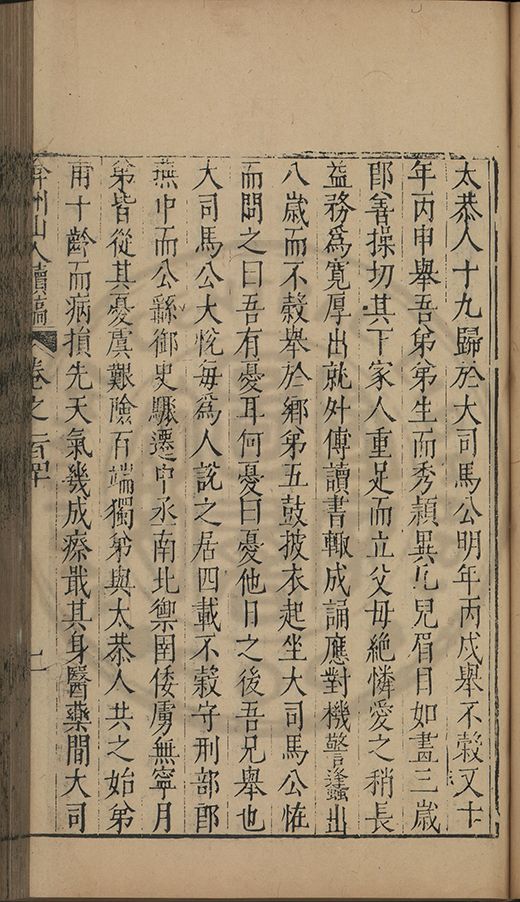 太恭人十九歸於大司馬公明年丙戌舉不穀又十
年丙申舉吾弟弟生而秀穎異凡兒眉目如畫三歲
即善操切其下家人重足而立父母絶憐愛之稍長
益務爲寛厚出就外傅讀書輙成誦應對機警逢蠭出
八歲而不穀舉於鄉弟五鼓披衣起坐大司馬公恠
而問之曰吾有憂耳何憂曰憂他日之後吾兄舉也
大司馬公大悅每爲人說之居四載不穀守刑部郎
燕中而公繇御史驟遷中丞南北禦圉倭虜無寧月
弟皆從其憂虞艱險百端獨弟與太恭人共之始弟
甫十齡而病損先天氣幾成瘵戕其身醫藥間大司
弇州山人續稿 卷之一百四十 七